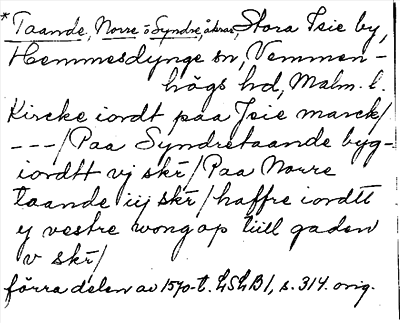 *Taande, Norre o Syndre, åkrar, Stora Isie by,
Hemmesdynge sn, Vemmen-
högs hd, Malm. l.
Kircke iordt paa Isie marck/
---/Paa Syndretaande byg-
iordtt vj skr̄/Paa Norre
taande iij skr̄/haffre iordtt
y vestre wong op tiill gaden
v skr̄/
förra delen av 1570-t. LSLB1, s. 314. orig.